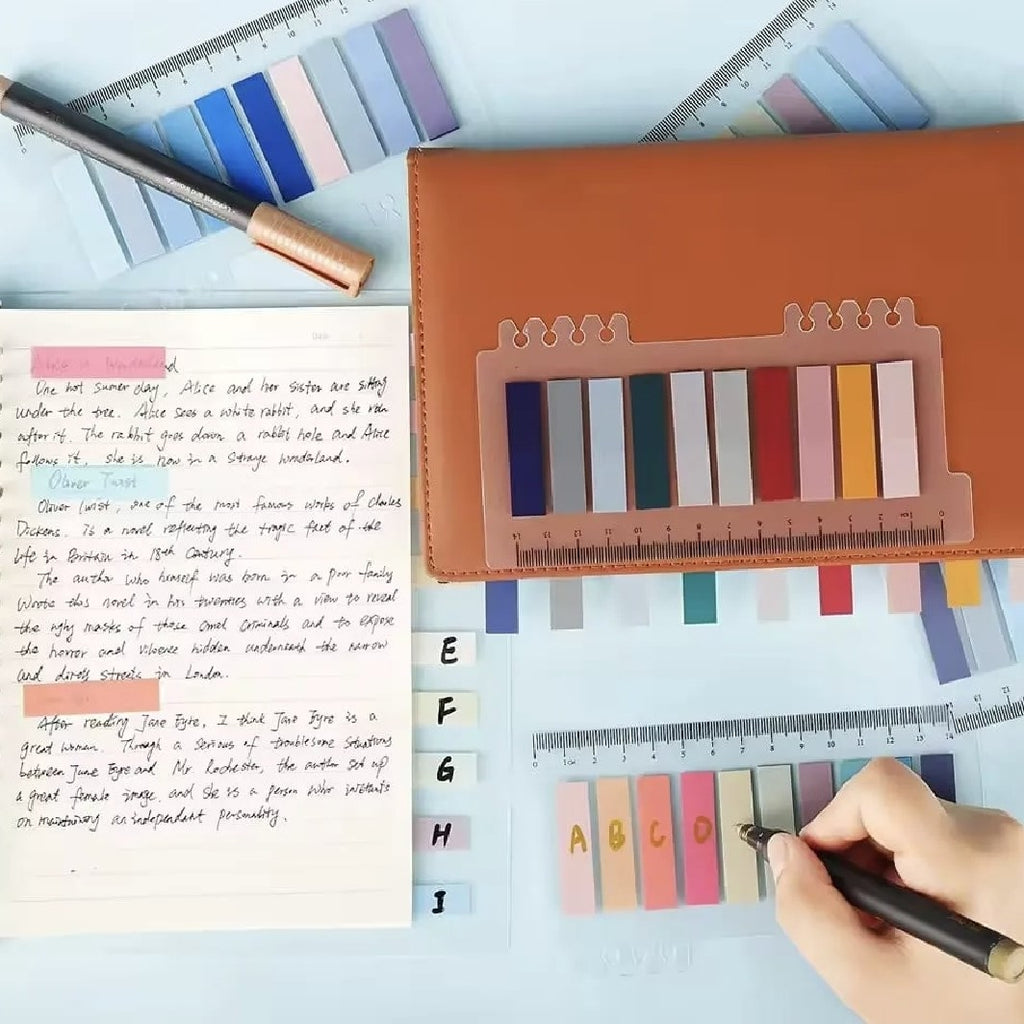 Date
Alice in Wonderland
One hot sumer day, Alice and her sister are sitting
under the tree. Alice sees a white rabbit, and she run
after it. The rabbit goes down a rabbit hole and Alice
follows it. She is now in a Strage Wonderland.
Oliver Twist
Oliver Twist, one of the most famous works of Charles
Dickens. Is a novel reflecting the tragic fact of the
life in Britain in 18th Century.
The author who himself was born in a poor family
Wrote this novel in his twenties with a view to reveal
the ugly masks of those Cruel Criminals and to expose
the horror and violence hidden underneath the narrow
and dirty streets in London.
After reading Jane Eyre, I think Jane Eyre is a
great woman. Through a serious of troublesome situations
between Jane Eyre and Mr Rochester, the author set up
a great female image, and she is a person who insists
on maintaining an independent personality.
E
F
G
H
I
14 13 12 11 10 9 8 7 6 5 4 3 2 1cm 0
0 1cm 2 3 4 5 6 7 8 9 10 11 12 13 14
A B C D